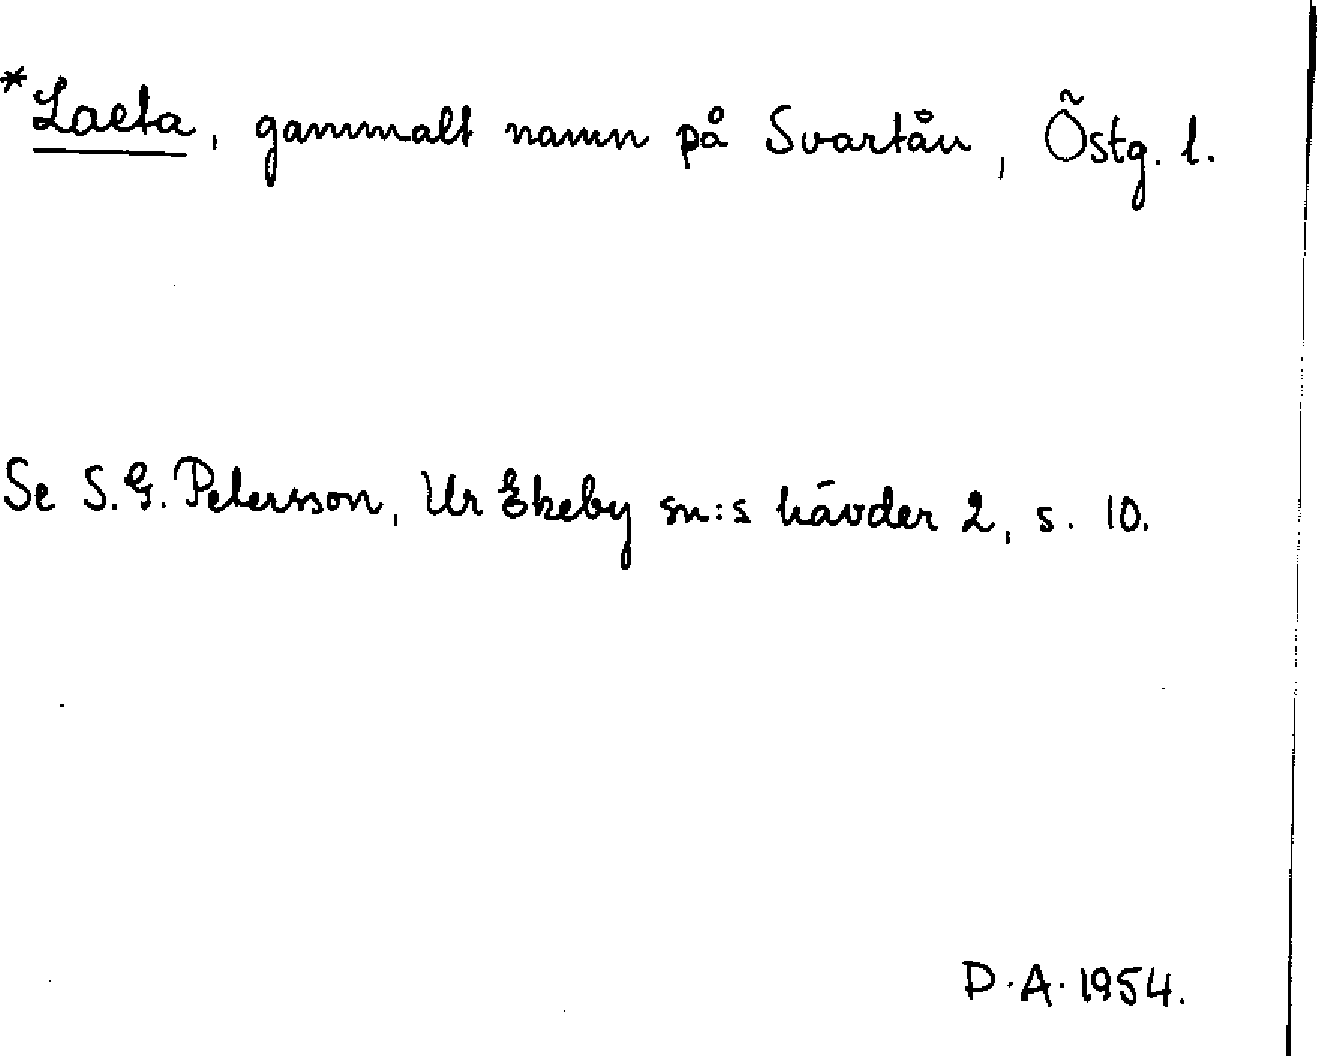 *Laeta, gammalt namn på Svartån, Östg. l.
Se S.G. Petersson, Ur Ekeby sn:s hävder 2, s. 10.
D.A. 1954.